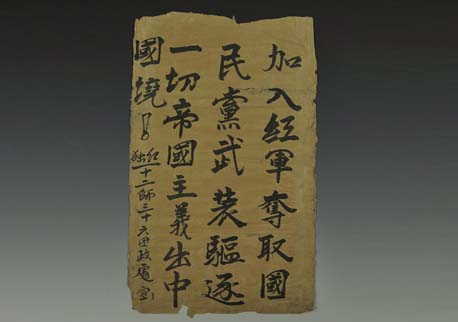 加入紅軍奪取國
民黨武裝驅逐
一切帝國主義出中
國境
紅独十二師三十六团政處(宣)